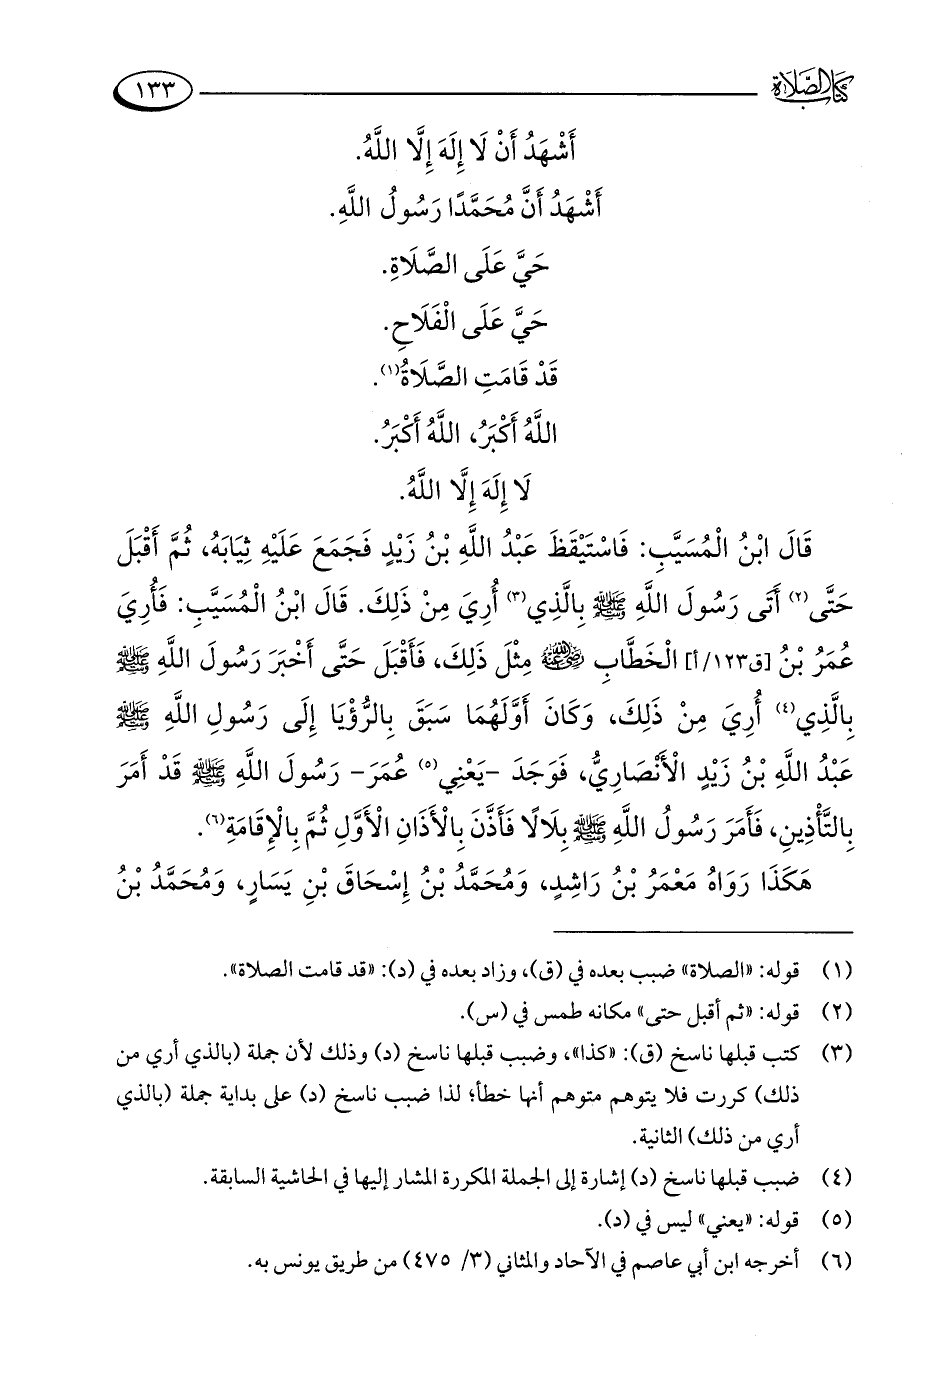 كتاب الصلاة ١٣٣
أَشْهَدُ أَنْ لَا إِلَهَ إِلَّا اللَّهُ.
أَشْهَدُ أَنَّ مُحَمَّدًا رَسُولُ اللَّهِ.
حَيَّ عَلَى الصَّلَاةِ.
حَيَّ عَلَى الْفَلَاحِ.
قَدْ قَامَتِ الصَّلَاةُ(١).
اللَّهُ أَكْبَرُ، اللَّهُ أَكْبَرُ.
لَا إِلَهَ إِلَّا اللَّهُ.
قَالَ ابْنُ الْمُسَيَّبِ: فَاسْتَيْقَظَ عَبْدُ اللَّهِ بْنُ زَيْدٍ فَجَمَعَ عَلَيْهِ ثِيَابَهُ، ثُمَّ أَقْبَلَ
حَتَّى(٢) أَتَى رَسُولَ اللَّهِ ﷺ بِالَّذِي(٣) أُرِيَ مِنْ ذَلِكَ. قَالَ ابْنُ الْمُسَيَّبِ: فَأُرِيَ
عُمَرُ بْنُ [ق١٢٣/أ] الْخَطَّابِ رضي الله عنه مِثْلَ ذَلِكَ، فَأَقْبَلَ حَتَّى أَخْبَرَ رَسُولَ اللَّهِ ﷺ
بِالَّذِي(٤) أُرِيَ مِنْ ذَلِكَ، وَكَانَ أَوَّلَهُمَا سَبَقَ بِالرُّؤْيَا إِلَى رَسُولِ اللَّهِ ﷺ
عَبْدُ اللَّهِ بْنُ زَيْدٍ الْأَنْصَارِيُّ، فَوَجَدَ -يَعْنِي(٥) عُمَرَ- رَسُولَ اللَّهِ ﷺ قَدْ أَمَرَ
بِالتَّأْذِينِ، فَأَمَرَ رَسُولُ اللَّهِ ﷺ بِلَالًا فَأَذَّنَ بِالْأَذَانِ الْأَوَّلِ ثُمَّ بِالْإِقَامَةِ(٦).
هَكَذَا رَوَاهُ مَعْمَرُ بْنُ رَاشِدٍ، وَمُحَمَّدُ بْنُ إِسْحَاقَ بْنِ يَسَارٍ، وَمُحَمَّدُ بْنُ
(١) قوله: «الصلاة» ضبب بعده في (ق)، وزاد بعده في (د): «قد قامت الصلاة».
(٢) قوله: «ثم أقبل حتى» مكانه طمس في (س).
(٣) كتب قبلها ناسخ (ق): «كذا»، وضبب قبلها ناسخ (د) وذلك لأن جملة (بالذي أري من
ذلك) كررت فلا يتوهم متوهم أنها خطأ؛ لذا ضبب ناسخ (د) على بداية جملة (بالذي
أري من ذلك) الثانية.
(٤) ضبب قبلها ناسخ (د) إشارة إلى الجملة المكررة المشار إليها في الحاشية السابقة.
(٥) قوله: «يعني» ليس في (د).
(٦) أخرجه ابن أبي عاصم في الآحاد والمثاني (٣/ ٤٧٥) من طريق يونس به.